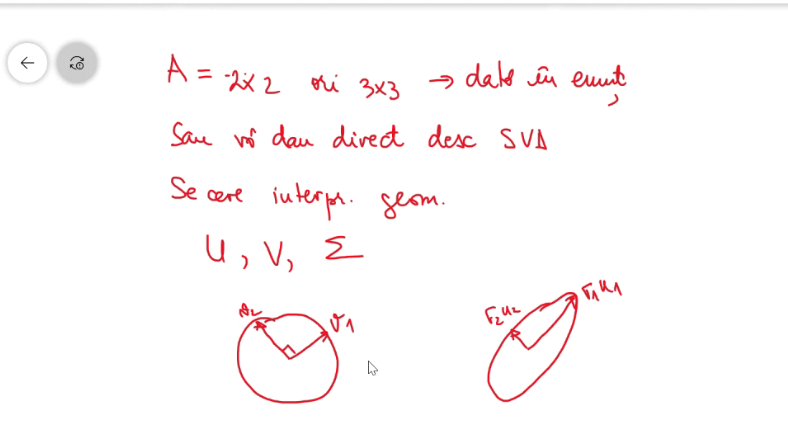 A = 2x2 ori 3x3 → date în enunț
Sau vă dau direct desc SVD
Se cere interpr. geom.
U, V, Σ
v2 v1
σ2u2 σ1u1